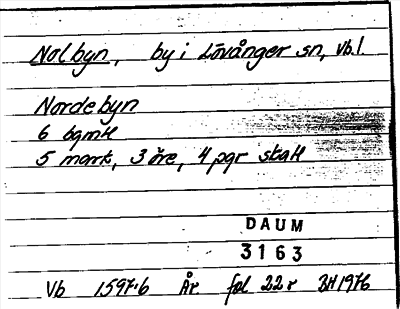 Nolbyn, by i Lövånger sn, Vb.l.
Nordebyn
6 bgmtl
5 mark, 3 öre, 4 pgr skatt
DAUM
3163
Vb 1597:6 År fol 22 r BH 1976